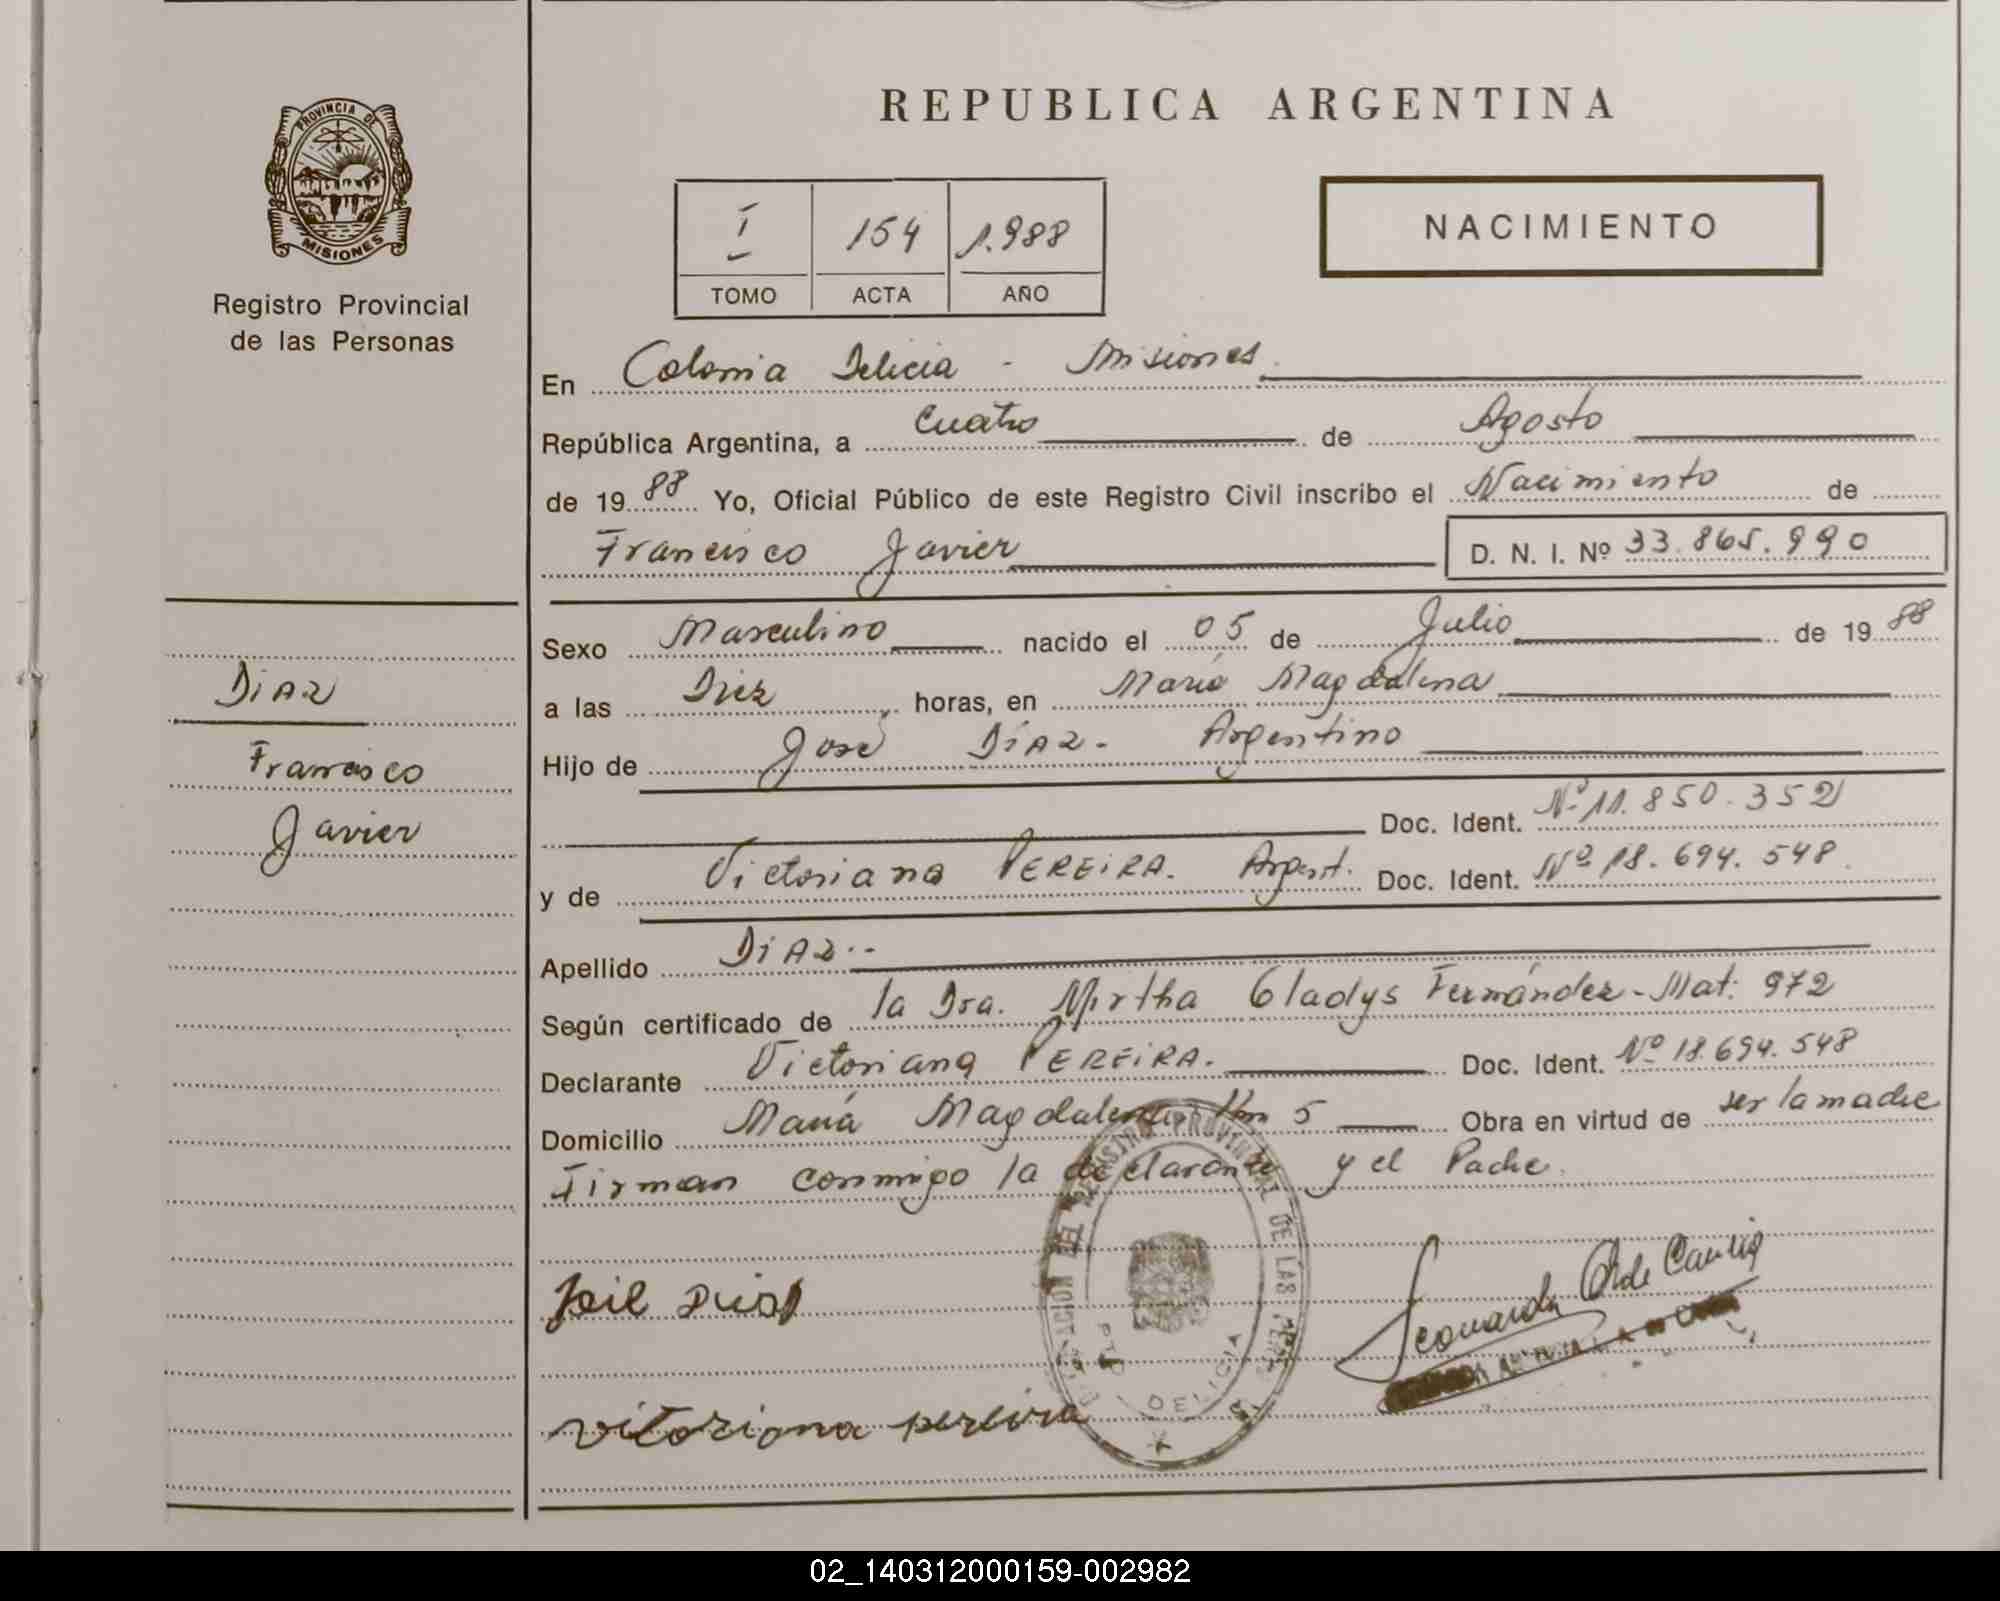 PROVINCIA DE
MISIONES
Registro Provincial
de las Personas
REPUBLICA ARGENTINA
I 154 1.988
TOMO ACTA AÑO
NACIMIENTO
En Colonia Delicia - Misiones
República Argentina, a Cuatro de Agosto
de 1988 Yo, Oficial Público de este Registro Civil inscribo el Nacimiento de
Francisco Javier D. N. I. Nº 33.865.990
Sexo Masculino nacido el 05 de Julio de 1988
a las Diez horas, en María Magdalena
Hijo de José DíAZ - Argentino
Doc. Ident. Nº 11.850.352
y de Victoriana PEREiRA. Argent. Doc. Ident. Nº 18.694.548
Apellido DiAZ..
Según certificado de la Dra. Mirtha Gladys Fernández - Mat: 972
Declarante Victoriana PEREiRA. Doc. Ident. Nº 18.694.548
Domicilio María Magdalena Km 5 Obra en virtud de ser la madre
Firman conmigo la declarante y el Padre.
DiAZ
Francisco
Javier
DEL REGISTRO PROVINCIAL DE LAS
DELICIA
vitoriana pereira
02_140312000159-002982